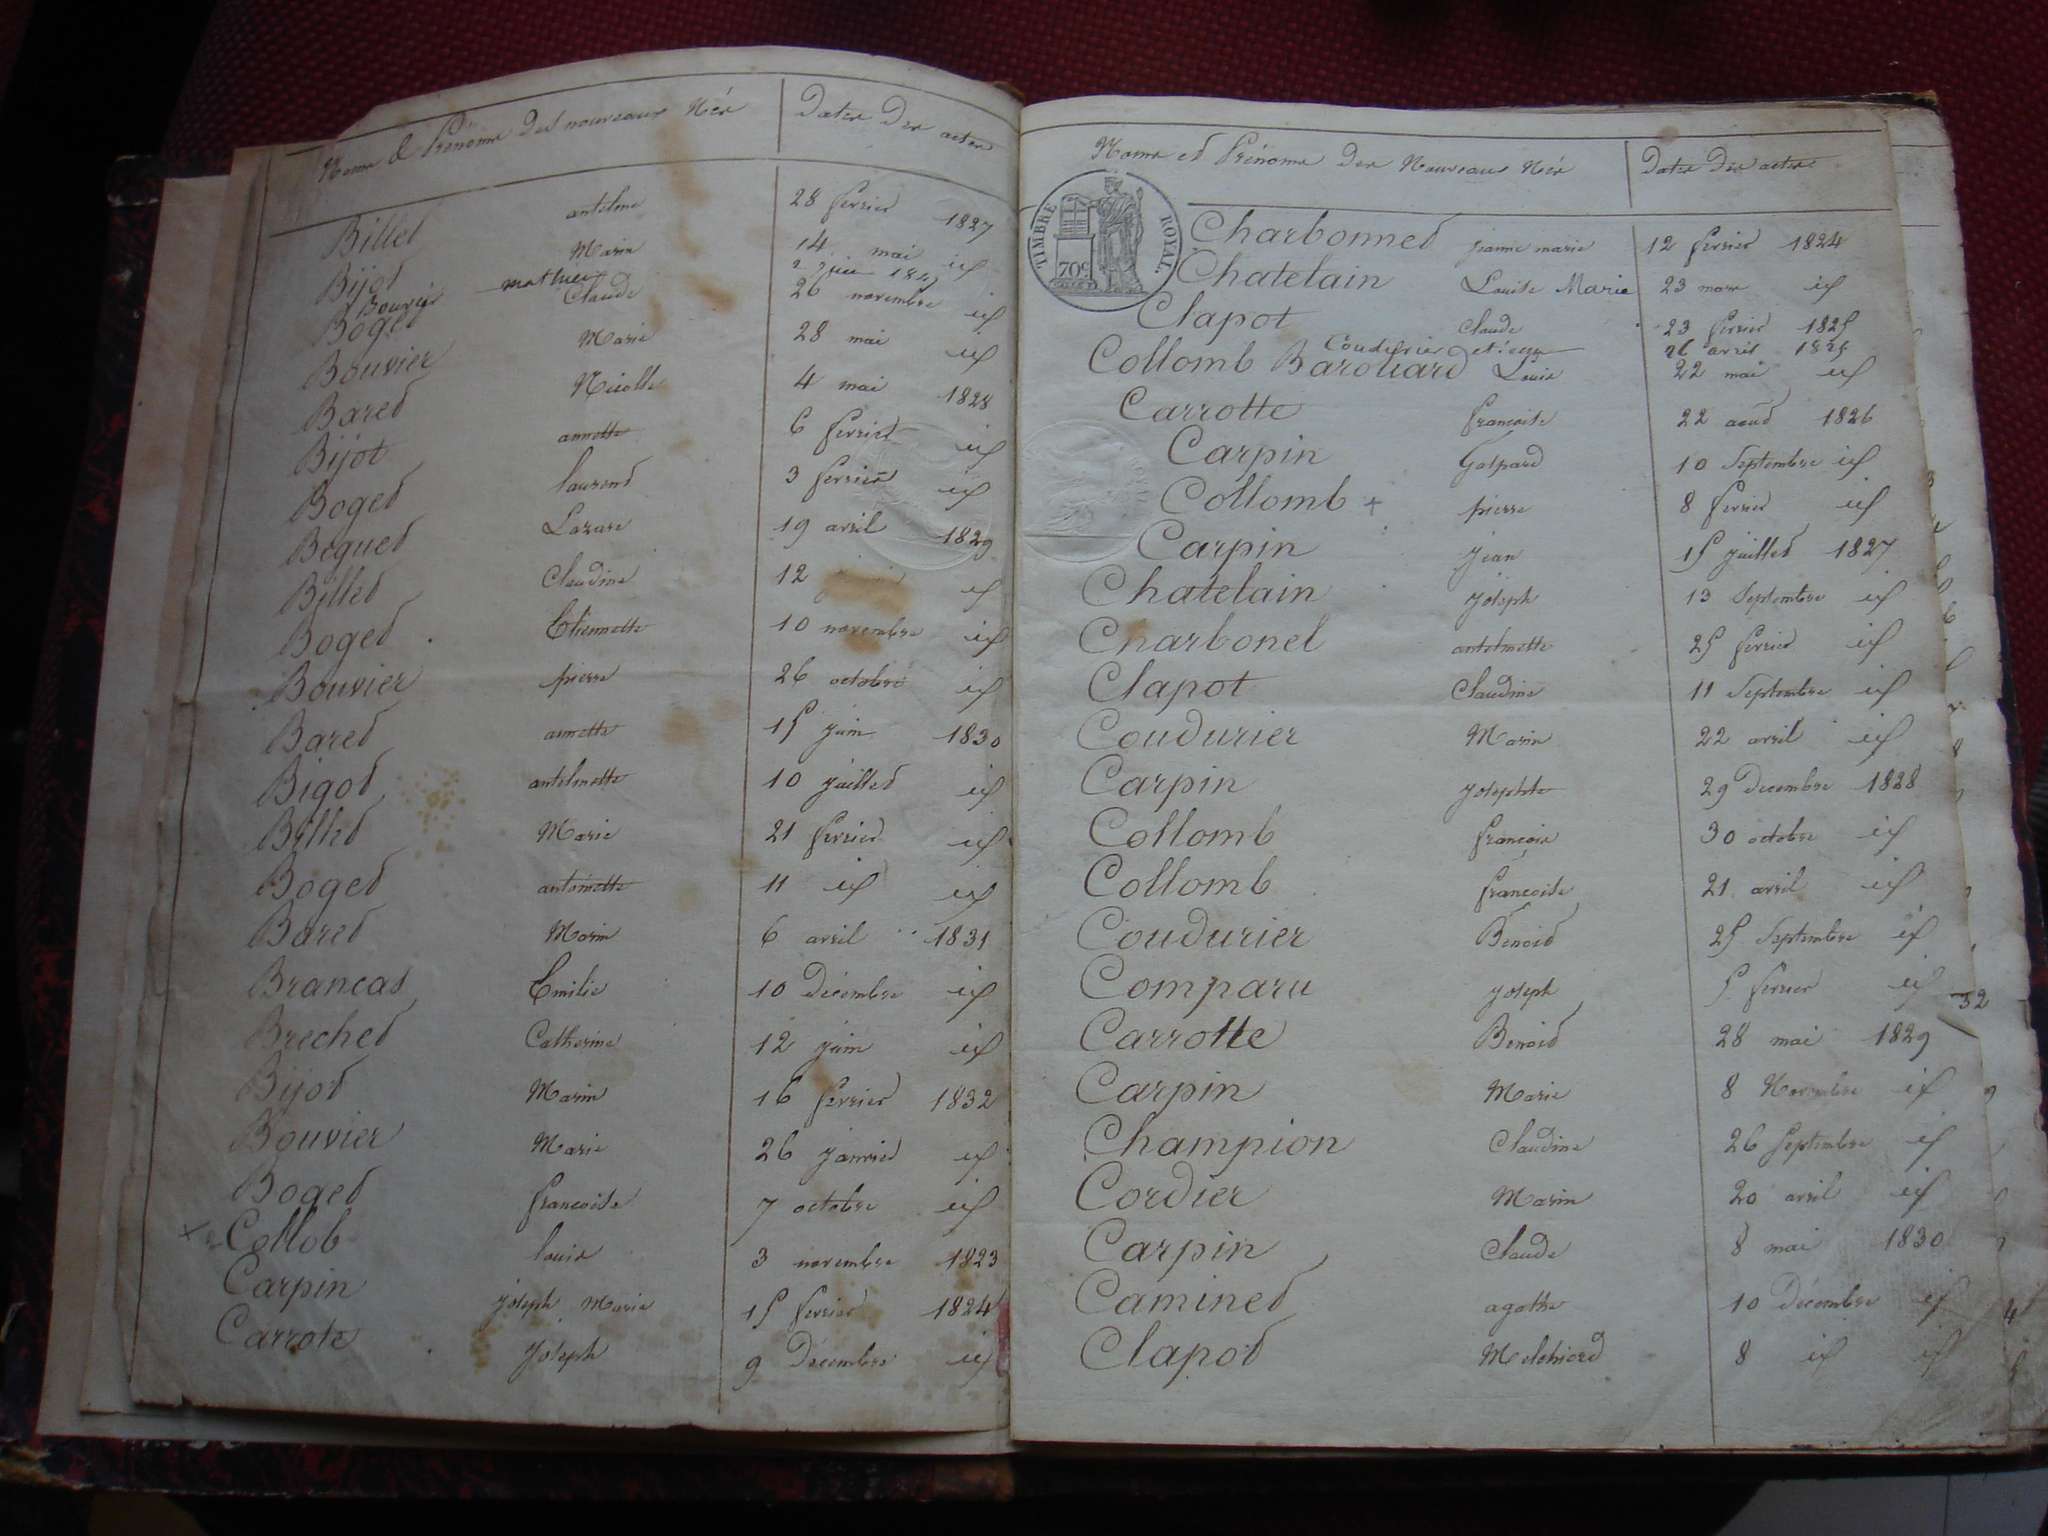 Noms & Prénoms des nouveaux Nés Dates Des actes
Billet antelme 28 fevrier 1827
Bijot Marin 14 mai id
Bouvier mathieu 1827
Boget Claude 26 novembre id
Bouvier Marie 28 mai id
Baret Nicolle 4 mai 1828
Bijot annette 6 fevrier id
Boget laurent 3 fevrier id
Beguet Lazare 19 avril 1829
Billet Claudine 12 id
Boget Etiennette 10 novembre id
Bouvier pierre 26 octobre id
Baret annette 15 juin 1830
Bigot antelmette 10 juillet id
Billet Marie 21 fevrier id
Boget antoinette 11 id id
Baret Marin 6 avril 1831
Brancas Emilie 10 Décembre id
Brechet Catherine 12 juin id
Bijot Marin 16 fevrier 1832
Bouvier Marie 26 janvier id
Boget francoise 7 octobre id
x Collob louis 3 novembre 1823
Carpin joseph Marie 15 fevrier 1824
Carrote joseph 9 Décembre id
Noms et Prénoms des Nouveaux Nés Dates Des actes
TIMBRE ROYAL
70c
Charbonnet jeanne marie 12 fevrier 1824
Chatelain Louise Marie 23 mars id
Clapot Claude 23 fevrier 1825
Coudurier etienne 26 avril 1825
Collomb Barouard Louis 22 mai id
Carrotte francoise 22 aout 1826
Carpin Gaspard 10 Septembre id
Collomb + pierre 8 fevrier id
Carpin jean 15 juillet 1827
Chatelain joseph 13 Septembre id
Charbonel antelmette 25 fevrier id
Clapot Claudine 11 Septembre id
Coudurier Marin 22 avril id
Carpin josephte 29 Decembre 1828
Collomb françois 30 octobre id
Collomb françoise 21 avril id
Coudurier Benoit 25 Septembre id
Comparu joseph 5 fevrier id
Carrotte Benoit 28 mai 1829
Carpin Marie 8 Novembre id
Champion Claudine 26 Septembre id
Cordier Marin 20 avril id
Carpin Claude 8 mai 1830
Caminet agathe 10 Décembre id
Clapot Melchiord 8 id id
32